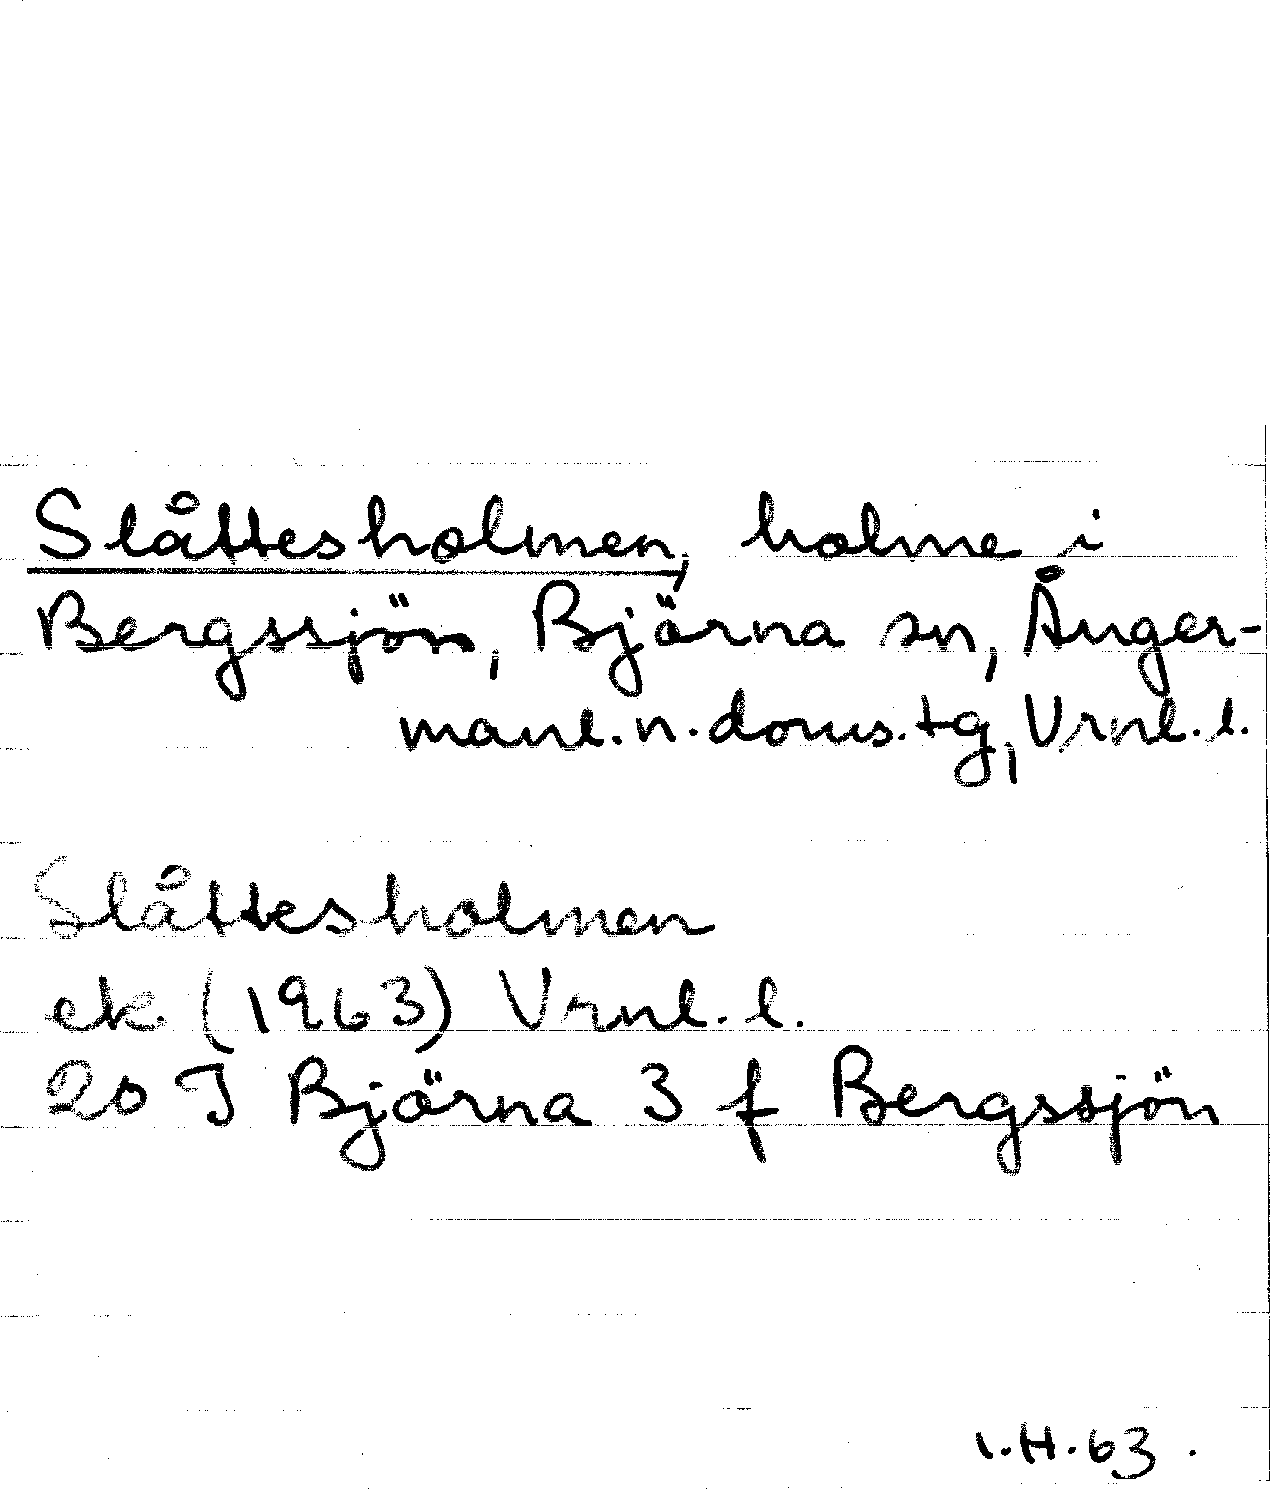 Slåttesholmen, holme i
Bergssjön, Björna sn, Ånger-
manl.n.doms.tg, Vrnl.l.
Slåttesholmen
ek (1963) Vrnl.l.
20 I Björna 3 f Bergssjön
I.H.63.